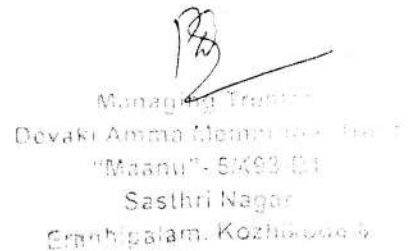 Managing Trustee
Devaki Amma Memorial Trust
"Maanu" - 5/493
Sasthri Nagar
Eranhipalam, Kozhikode